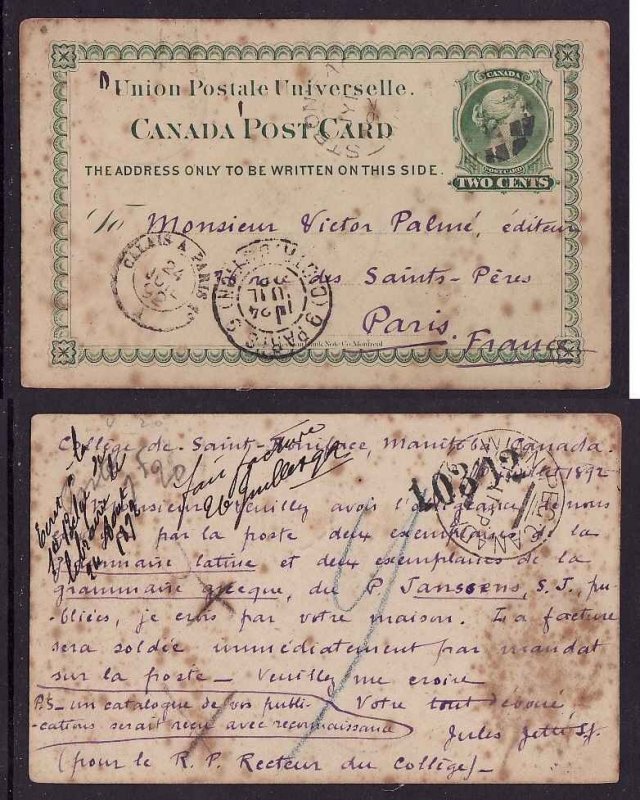 Union Postale Universelle.
CANADA POST CARD
THE ADDRESS ONLY TO BE WRITTEN ON THIS SIDE.
CANADA
POSTCARD
TWO CENTS
To Monsieur Victor Palmé, éditeur
des Saints-Pères
Paris.
France
CALAIS A PARIS
PARIS
24
JUIL
92
DISTRIBUTION
Collège de Saint-Boniface, Manitoba, Canada.
1892
10312
CANADA
Faire Facture
26 Juillet 92
Monsieur, Veuillez avoir l'obligeance de nous
par la poste deux exemplaires de la
grammaire latine et deux exemplaires de la
grammaire grecque, du P. Janssens, S.J., pu-
bliées, je crois par votre maison. La facture
sera soldée immédiatement par mandat
sur la poste — Veuillez me croire
P.S.— un catalogue de vos publi- Votre tout dévoué
cations serait reçu avec reconnaissance
Jules Jetté s.j.
(pour le R. P. Recteur du Collège)—